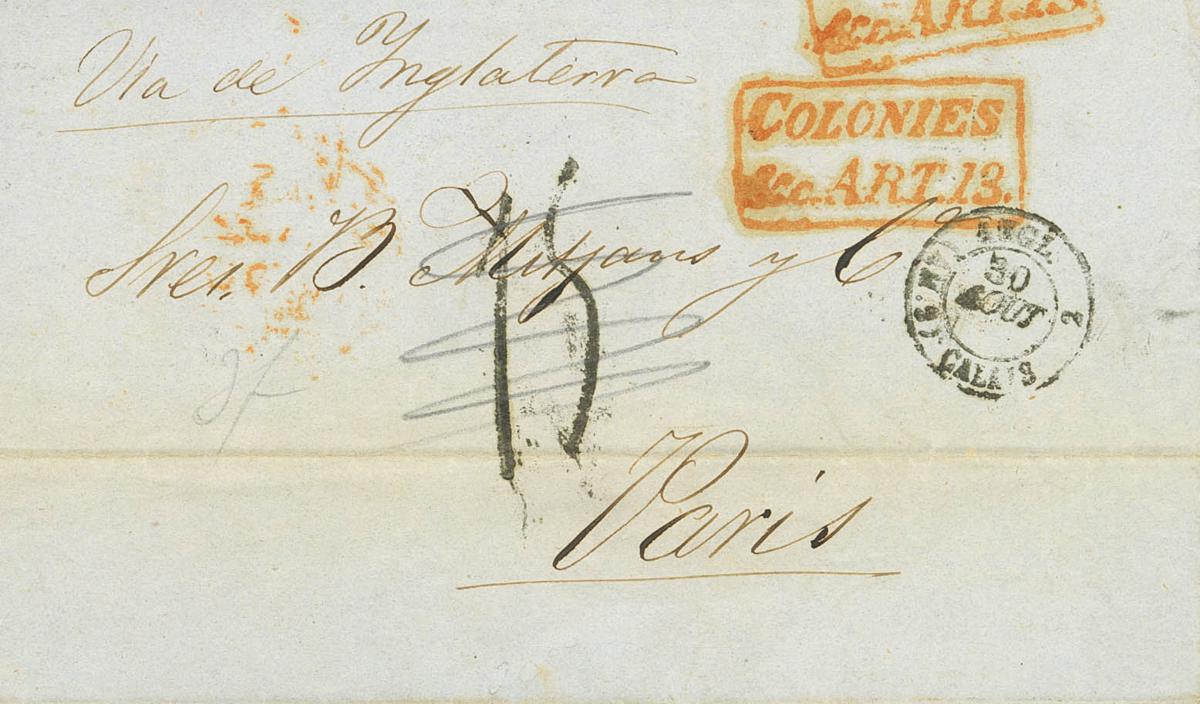 &c. ART.13.
Via de Ynglaterra
COLONIES
&c. ART.13.
Sres. B. Mitjans y Cª
15
ANGL.
30
AOUT
2
CALAIS
Paris